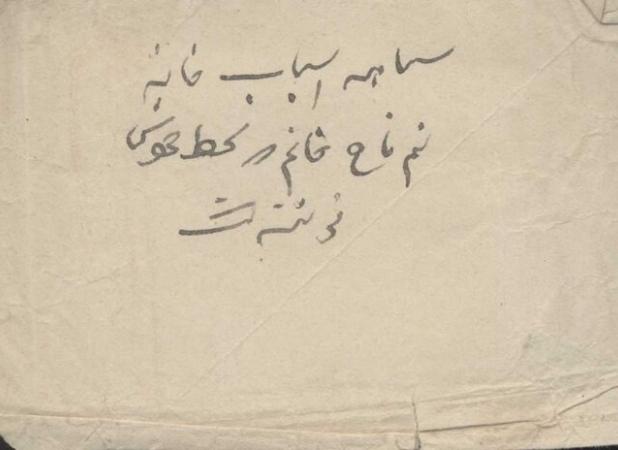 سیاهه اسباب خانه
نم تاج خانم و بخط خودش
نوشته است